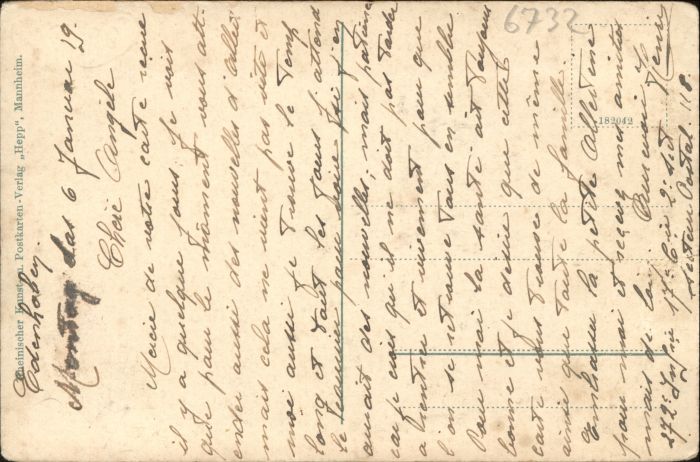 6732
182042
Rheinischer Kunst- u. Postkarten-Verlag „Hepp“, Mannheim.
Edenkoben
Montag das 6 Januar 19.
Chère Angèle
Merci de votre carte reçue
il y a quelque jours je vois
que pour le moment vous att-
endez aussi des nouvelles d'allez
mais cela ne vient pas vite et
moi aussi je trouve le temp
long et tout les jours j'attend
le courrier pour voir si j'en
aurait des nouvelles; mais patience
car je crois qu'il ne doit pas tarder
a rentrer et vivement pour que
l'on se retrouve tous en semble
Pour moi la santé ait toujours
bonne et je désire que cette
carte vous trouve de même
ainsi que toute la famille.
Embrasser la petite Albertine
pour moi et reçevez mes amitiés
Henri
272e 17e Cie
Postal 118